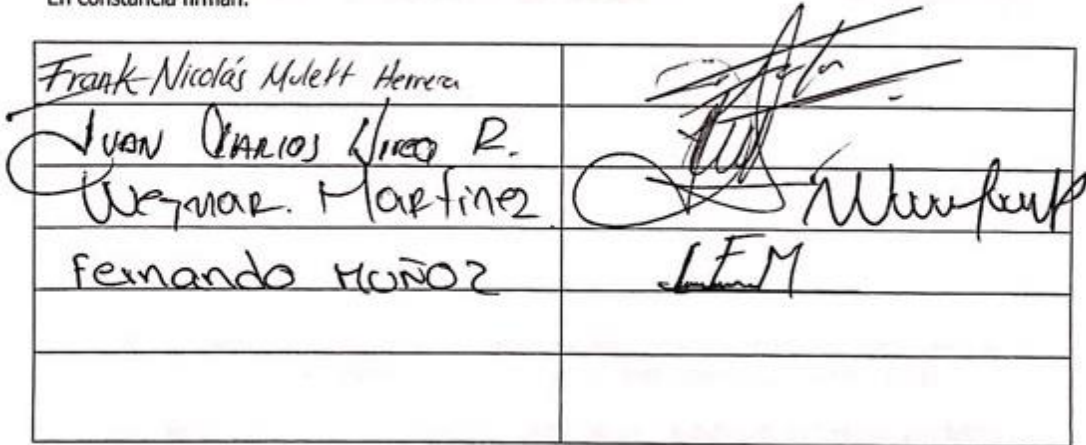 En constancia firman:
Frank Nicolás Mulett Herrera
JUAN CARLOS R.
Weymar. Martinez
Fernando MUÑOZ
LFM